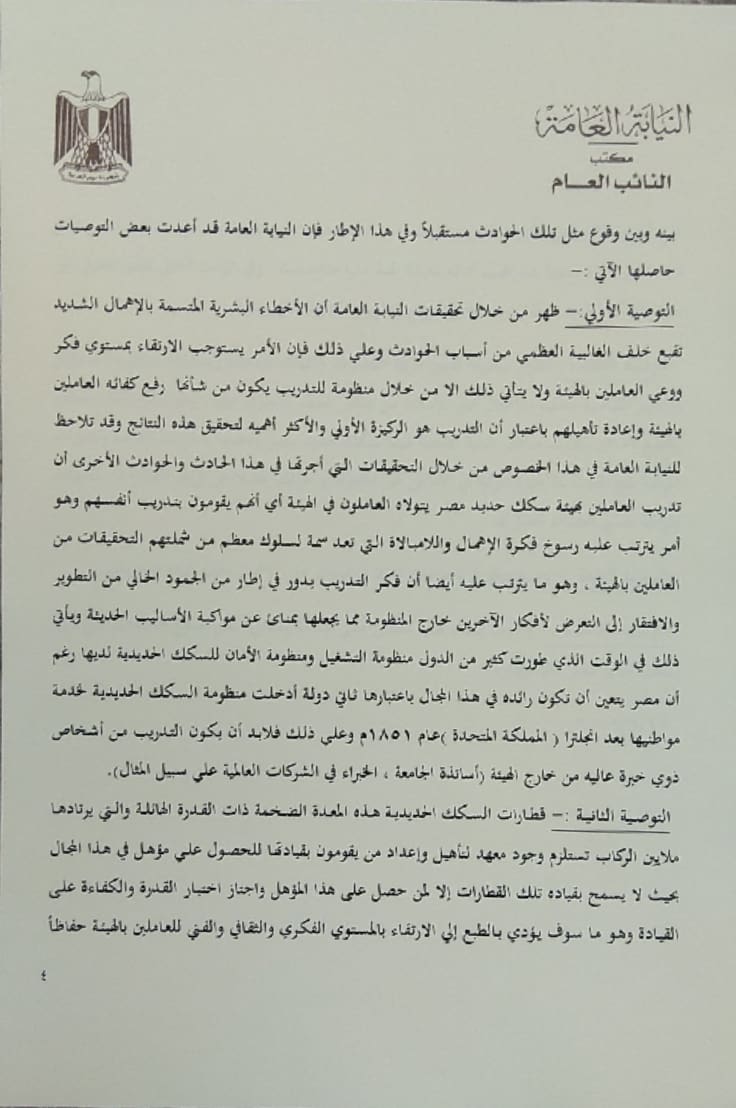 النيابة العامة
مكتب
النائب العـام
بينه وبين وقوع مثل تلك الحوادث مستقبلاً وفي هذا الإطار فإن النيابة العامة قد أعدت بعض التوصيات
حاصلها الآتي :–
التوصية الأولي:– ظهر من خلال تحقيقات النيابة العامة أن الأخطاء البشرية المتسمة بالإهمال الشديد
تقبع خلف الغالبية العظمي من أسباب الحوادث وعلي ذلك فإن الأمر يستوجب الارتقاء بمستوي فكر
ووعي العاملين بالهيئة ولا يتأتي ذلك الا من خلال منظومة للتدريب يكون من شأنها رفع كفائه العاملين
بالهيئة وإعادة تأهيلهم باعتبار أن التدريب هو الركيزة الأولي والأكثر أهميه لتحقيق هذه النتائج وقد تلاحظ
للنيابة العامة في هذا الخصوص من خلال التحقيقات التي أجرتها في هذا الحادث والحوادث الأخرى أن
تدريب العاملين بهيئة سكك حديد مصر يتولاه العاملون في الهيئة أي أنهم يقومون بتدريب أنفسهم وهو
أمر يترتب عليه رسوخ فكرة الإهمال واللامبالاة التي تعد سمة لسلوك معظم من شملتهم التحقيقات من
العاملين بالهيئة ، وهو ما يترتب عليه أيضا أن فكر التدريب يدور في إطار من الجمود الخالي من التطوير
والافتقار إلى التعرض لأفكار الآخرين خارج المنظومة مما يجعلها بمنائ عن مواكبة الأساليب الحديثة ويأتي
ذلك في الوقت الذي طورت كثير من الدول منظومة التشغيل ومنظومة الأمان للسكك الحديدية لديها رغم
أن مصر يتعين أن تكون رائده في هذا المجال باعتبارها ثاني دولة أدخلت منظومة السكك الحديدية لخدمة
مواطنيها بعد انجلترا ( المملكة المتحدة )عام ١٨٥١م وعلي ذلك فلابد أن يكون التدريب من أشخاص
ذوي خبرة عاليه من خارج الهيئة (أساتذة الجامعة ، الخبراء في الشركات العالمية علي سبيل المثال).
التوصية الثانية :– قطارات السكك الحديدية هذه المعدة الضخمة ذات القدرة الهائلة والتي يرتادها
ملايين الركاب تستلزم وجود معهد لتأهيل وإعداد من يقومون بقيادتها للحصول علي مؤهل في هذا المجال
بحيث لا يسمح بقياده تلك القطارات إلا لمن حصل على هذا المؤهل واجتاز اختبار القدرة والكفاءة على
القيادة وهو ما سوف يؤدي بالطبع إلي الارتفاء بالمستوي الفكري والثقافي والفني للعاملين بالهيئة حفاظاً
٤